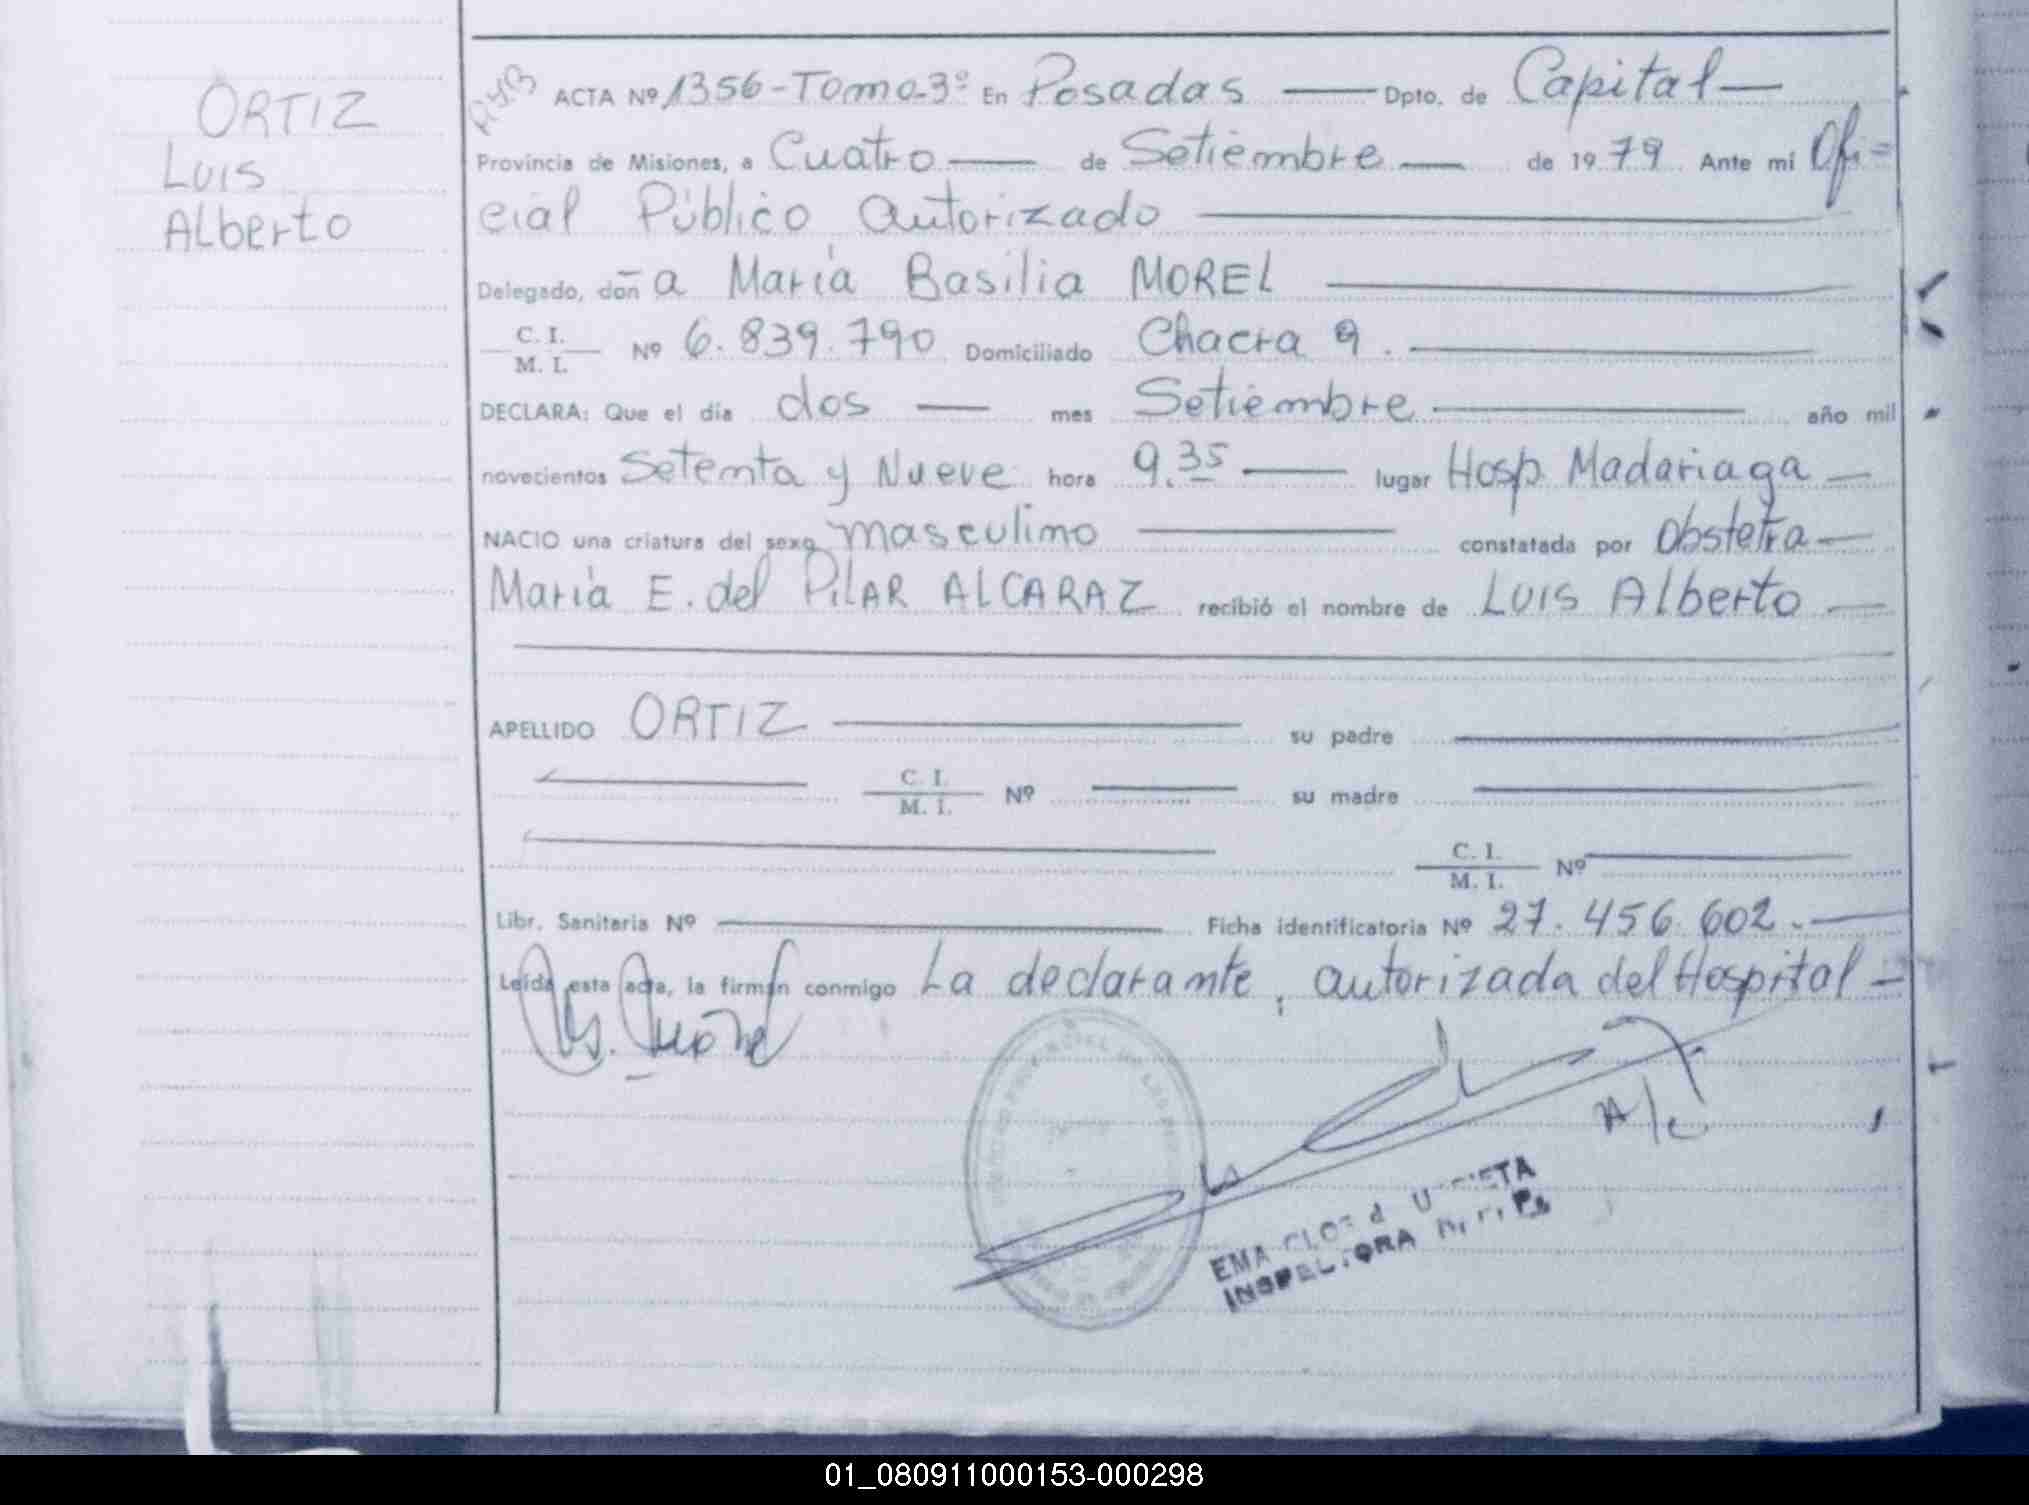 ORTIZ
Luis
Alberto
ACTA Nº 1356-Tomo-3º En Posadas — Dpto. de Capital —
Provincia de Misiones, a Cuatro — de Setiembre — de 1979 Ante mí Ofi=
cial Público autorizado —
Delegado, doña María Basilia MOREL —
C. I.
M. I.
Nº 6.839.790 Domiciliado Chacra 9. —
DECLARA: Que el día dos — mes Setiembre — año mil
novecientos Setenta y Nueve hora 9.35 — lugar Hosp. Madariaga —
NACIO una criatura del sexo masculino — constatada por Obstetra —
María E. del PILAR ALCARAZ recibió el nombre de Luis Alberto —
APELLIDO ORTIZ — su padre —
C. I.
M. I.
Nº — su madre —
C. I.
M. I.
Nº —
Libr. Sanitaria Nº — Ficha identificatoria Nº 27.456.602. —
Leída esta acta, la firman conmigo La declarante, autorizada del Hospital —
A/c
EMA
INSPECTORA
01_080911000153-000298